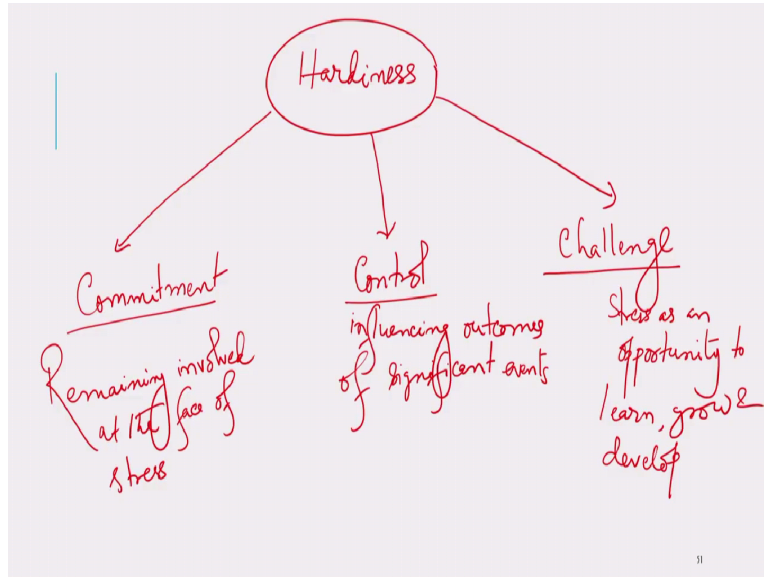 Hardiness
Commitment
Remaining involved
at the face of
stress
Control
influencing outcomes
of significant events
Challenge
Stress as an
opportunity to
learn, grow &
develop
51